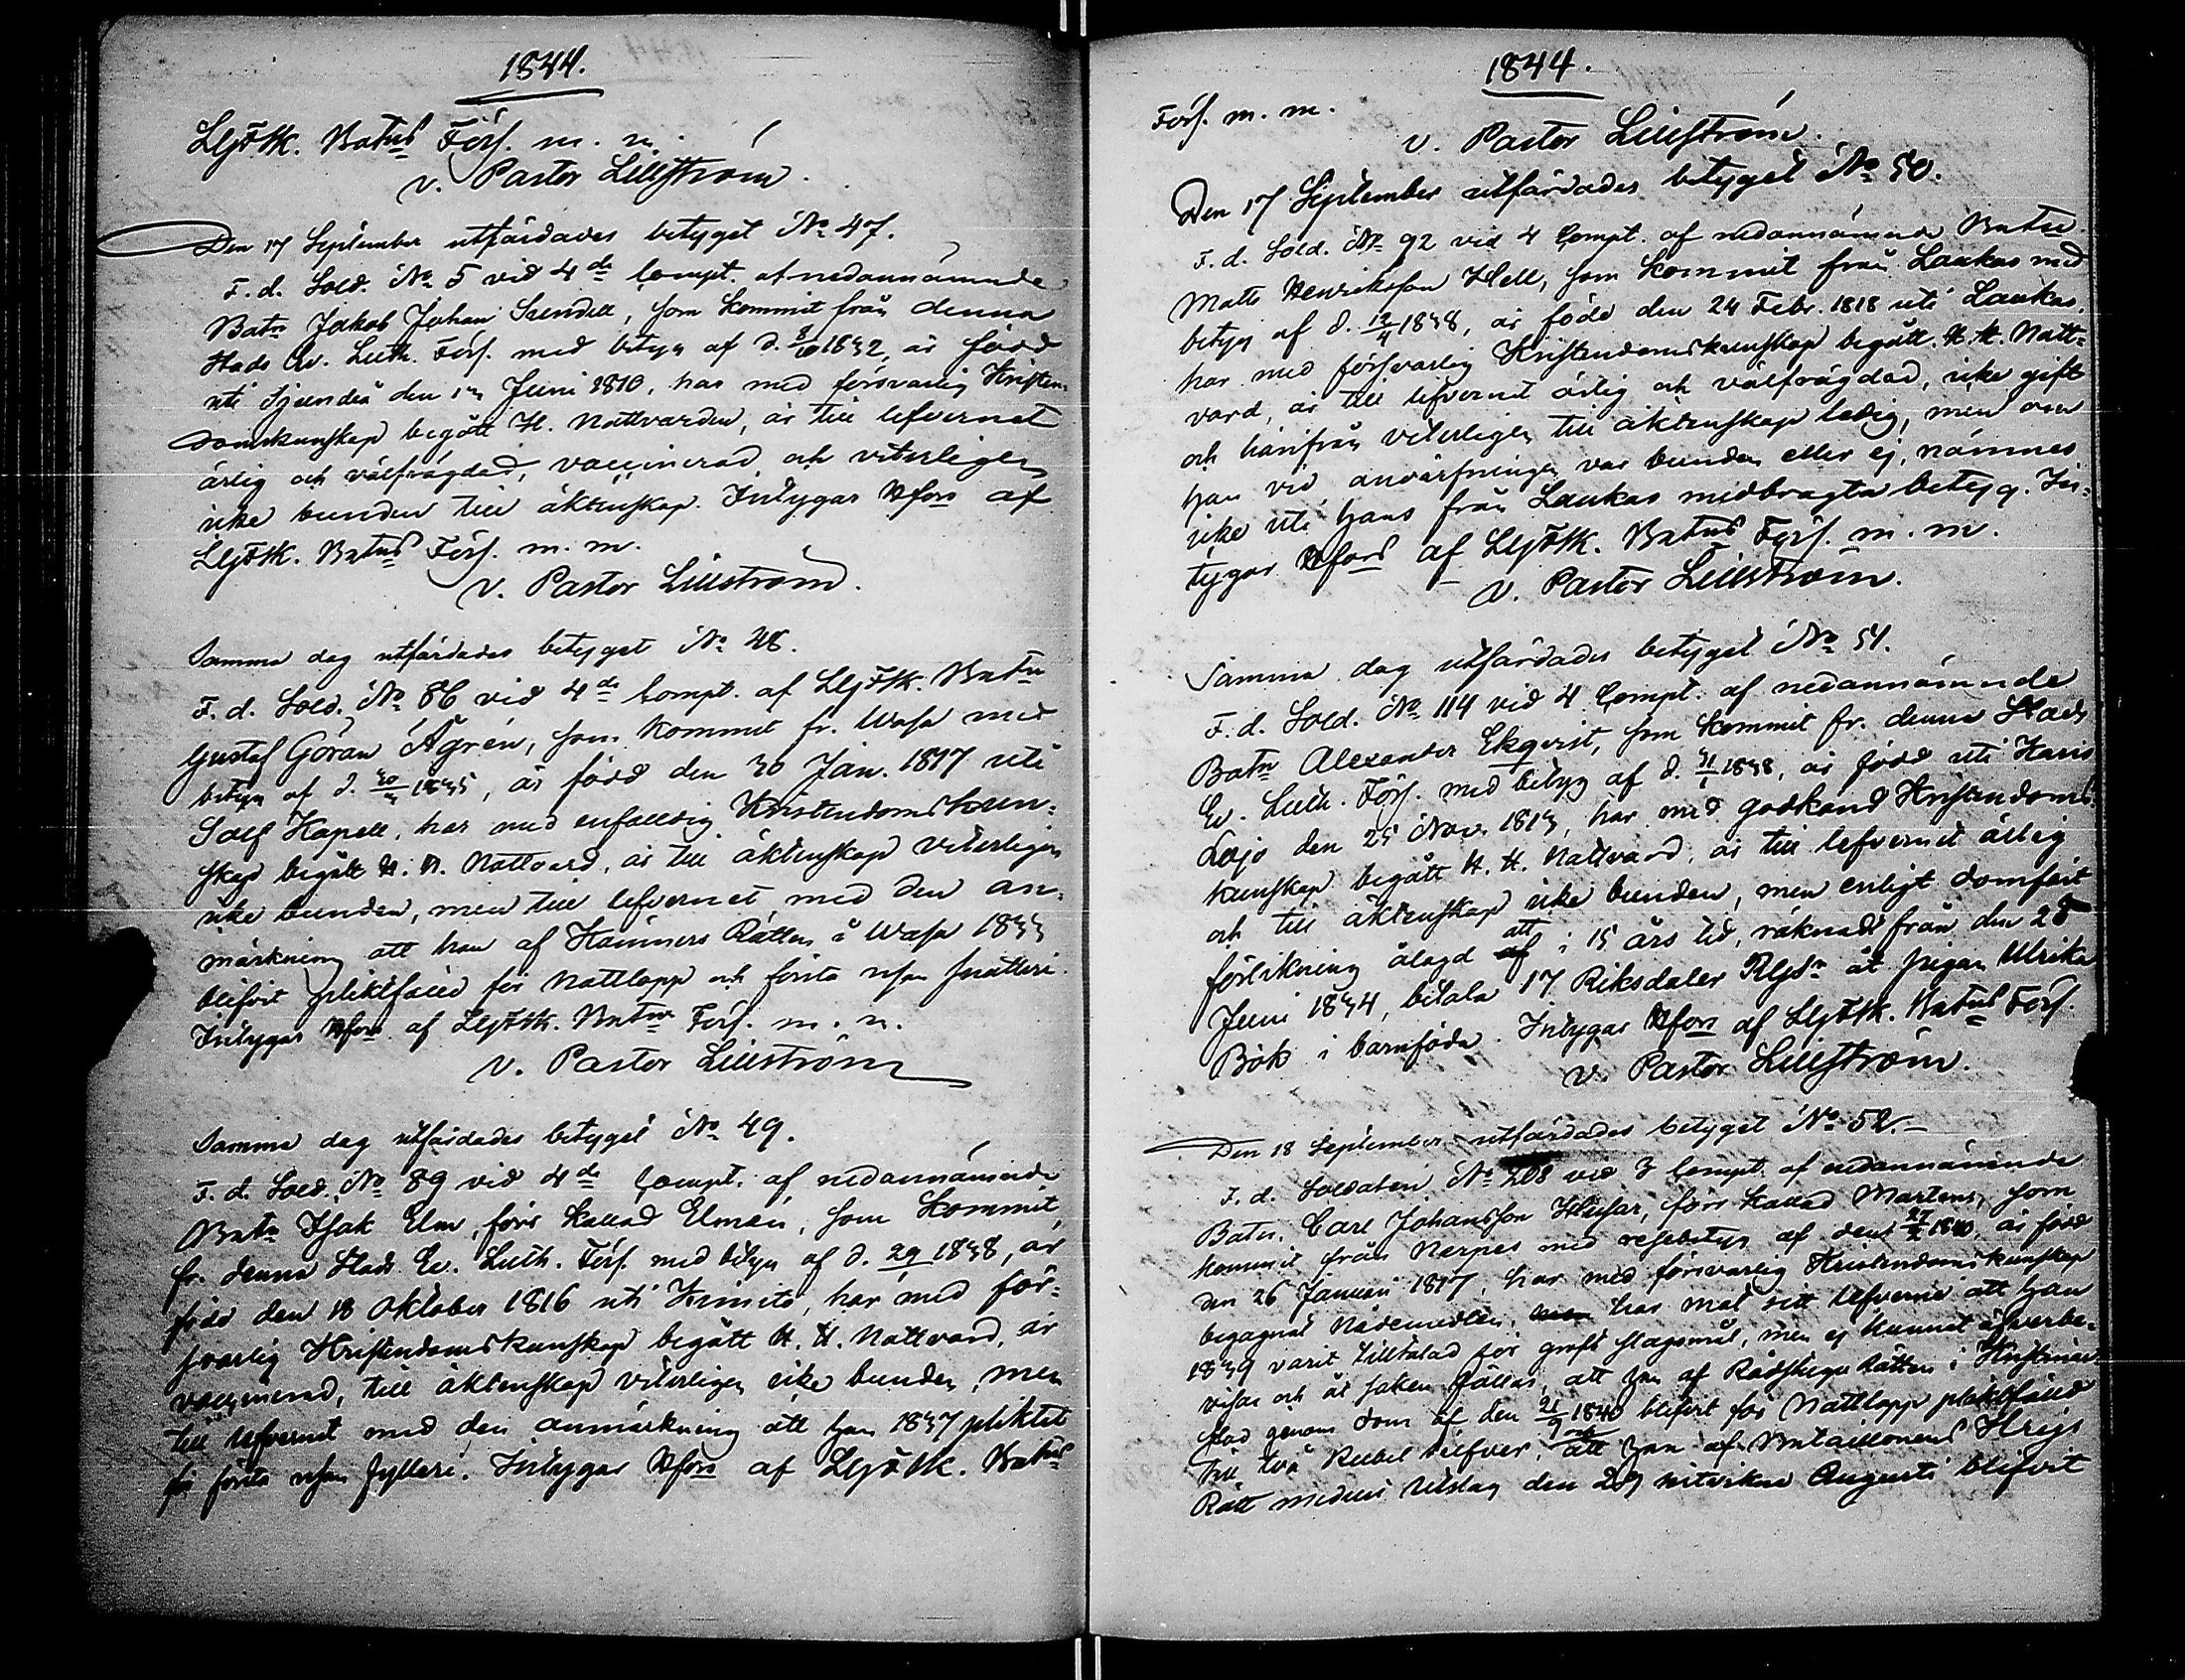 1844.
LGFSk. Batns Förs. m. m.
v. Pastor Lillström.
Den 17 September utfärdades betyget No 47.
F. d. Sold. No 5 vid 4de Compt. af nedannämnde
Batn Jakob Johan Sundell, som kommit från denna
Stads Ev. Luth. Förs. med betyg af d. 1832, är född
uti Sjundeå den Juni 1810, har med försvarlig Kristen-
domskunskap begått H. Nattvarden, är till lefvernet
ärlig och välfrägdad, vaccinerad, och viterligen
icke bunden till äktenskap. Intygar Hfors af
LGFSk. Batns Förs. m. m.
v. Pastor Lillström.
Samma dag utfärdades betyget No 48.
F. d. Sold. No 86 vid 4de Compt. af LGFSk. Batn
Gustaf Göran Ågrén, som kommit fr. Wasa med
betyg af d. 1835, är född den 30 Jan. 1817 uti
Solf Kapell, har med enfaldig Kristendomskun-
skap begått H. H. Nattvard, är till äktenskap viterligen
icke bunden, men till lefvernet med den an-
märkning att han af Kämners Rätten i Wasa 1833
blifvit pliktfälld för Nattlopp och första resan snatteri.
Intygar Hfors af LGFSk. Batns Förs. m. m.
v. Pastor Lillström
Samma dag utfärdades betyget No 49.
F. d. Sold. No 89 vid 4de Compt. af nedannämnde
Batn Isak Elm, förr kallad Elmén, som kommit
fr. denna Stads Ev. Luth. Förs. med betyg af d. 1838, är
född den 18 Oktober 1816 uti Kimito, har med för-
svarlig Kristendomskunskap begått H. H. Nattvard, är
vaccinerad, till äktenskap viterligen icke bunden, men
till lefvernet med den anmärkning att han 1837 pliktat
för första resan fylleri. Intygar Hfors af LGFSk. Batns
1844.
Förs. m. m.
v. Pastor Lillström.
Den 17 September utfärdades betyget No 50.
F. d. Sold. No 92 vid 4 Compt. af nedannämnde Batn
Matts Henriksson Hell, som kommit från Laukas med
betyg af d. 12/4 1838, är född den 24 Febr. 1818 uti Laukas,
har med försvarlig Kristendomskunskap begått H. H. Natt-
vard, är till lefvernet ärlig och välfrägdad, icke gift
och härifrån viterligen till äktenskap ledig, men om
han vid anvärfningen var bunden eller ej, nämnes
icke uti hans från Laukas medbragta betyg. In-
tygar Hfors af LGFSk. Batns Förs. m. m.
v. Pastor Lillström.
Samma dag utfärdades betyget No 51.
F. d. Sold. No 114 vid 4 Compt. af nedannämnde
Batn Alexander Ekqvist, som kommit fr. denna Stads
Ev. Luth. Förs. med betyg af d. 31/1 1838, är född uti Karis
Lojo den 25 Nov. 1813, har med godkänd Kristendoms-
kunskap begått H. H. Nattvard, är till lefvernet ärlig
och till äktenskap icke bunden, men enligt domfäst
förlikning ålagd af att i 15 års tid, räknadt från den 28
Juni 1834, betala 17 Riksdaler Rgds åt pigan Ulrika
Bök i barnföda. Intygar Hfors af LGFSk. Batns Förs.
v. Pastor Lillström.
Den 18 September utfärdades betyget No 52.
F. d. Soldaten No 208 vid 3 Compt. af nedannämnde
Batn. Carl Johansson Husar, förr kallad Martens, som
kommit från Nerpes med resebetyg af den 1840, är född
den 26 Januari 1817, har med försvarlig Kristendomskunskap
begagnat Nådemedlen, har mot sitt lefverne att han
1839 varit tilltalad för groft slagsmål, men ej kunnat öfverbe-
visas och åt saken fällas, att han af Rådstugu Rätten i Kristine-
stad genom dom af den 21/9 1840 blifvit för Nattlopp pliktfälld
till två Rubel silfver, att han af Bataillonens Krigs
Rätt medelst utslag den 29 nitvikne Augusti blifvit